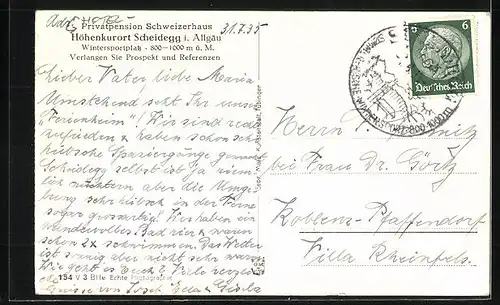 Adr. Hotel
Privatpension Schweizerhaus
31.7.35
Höhenkurort Scheidegg i. Allgäu
Wintersportplatz - 800-1000 m ü. M.
Verlangen Sie Prospekt und Referenzen
Lieber Vater, liebe Maria
Umstehend seht Ihr unser
"Ferienheim". Wir sind recht
zufrieden & haben schon sehr
hübsche Spaziergänge gemacht
Scheidegg selbst ist ja ziem-
lich nüchtern aber die Umge-
bung sehr hübsch in der Ferne
sogar grossartig! Wir haben ein
wundervolles Bad hier & waren
schon 2x schwimmen. Das Wetter
ist sonnig aber nicht sehr warm
Wie geht es Euch? Viele herzliche
Grüsse von Josef,
154 V 3 Bille Echte Photographie
6
Deutsches Reich
800-1000 m
Herrn
bei Frau Dr. Görtz
Koblenz-Pfaffendorf
Villa Rheinfels